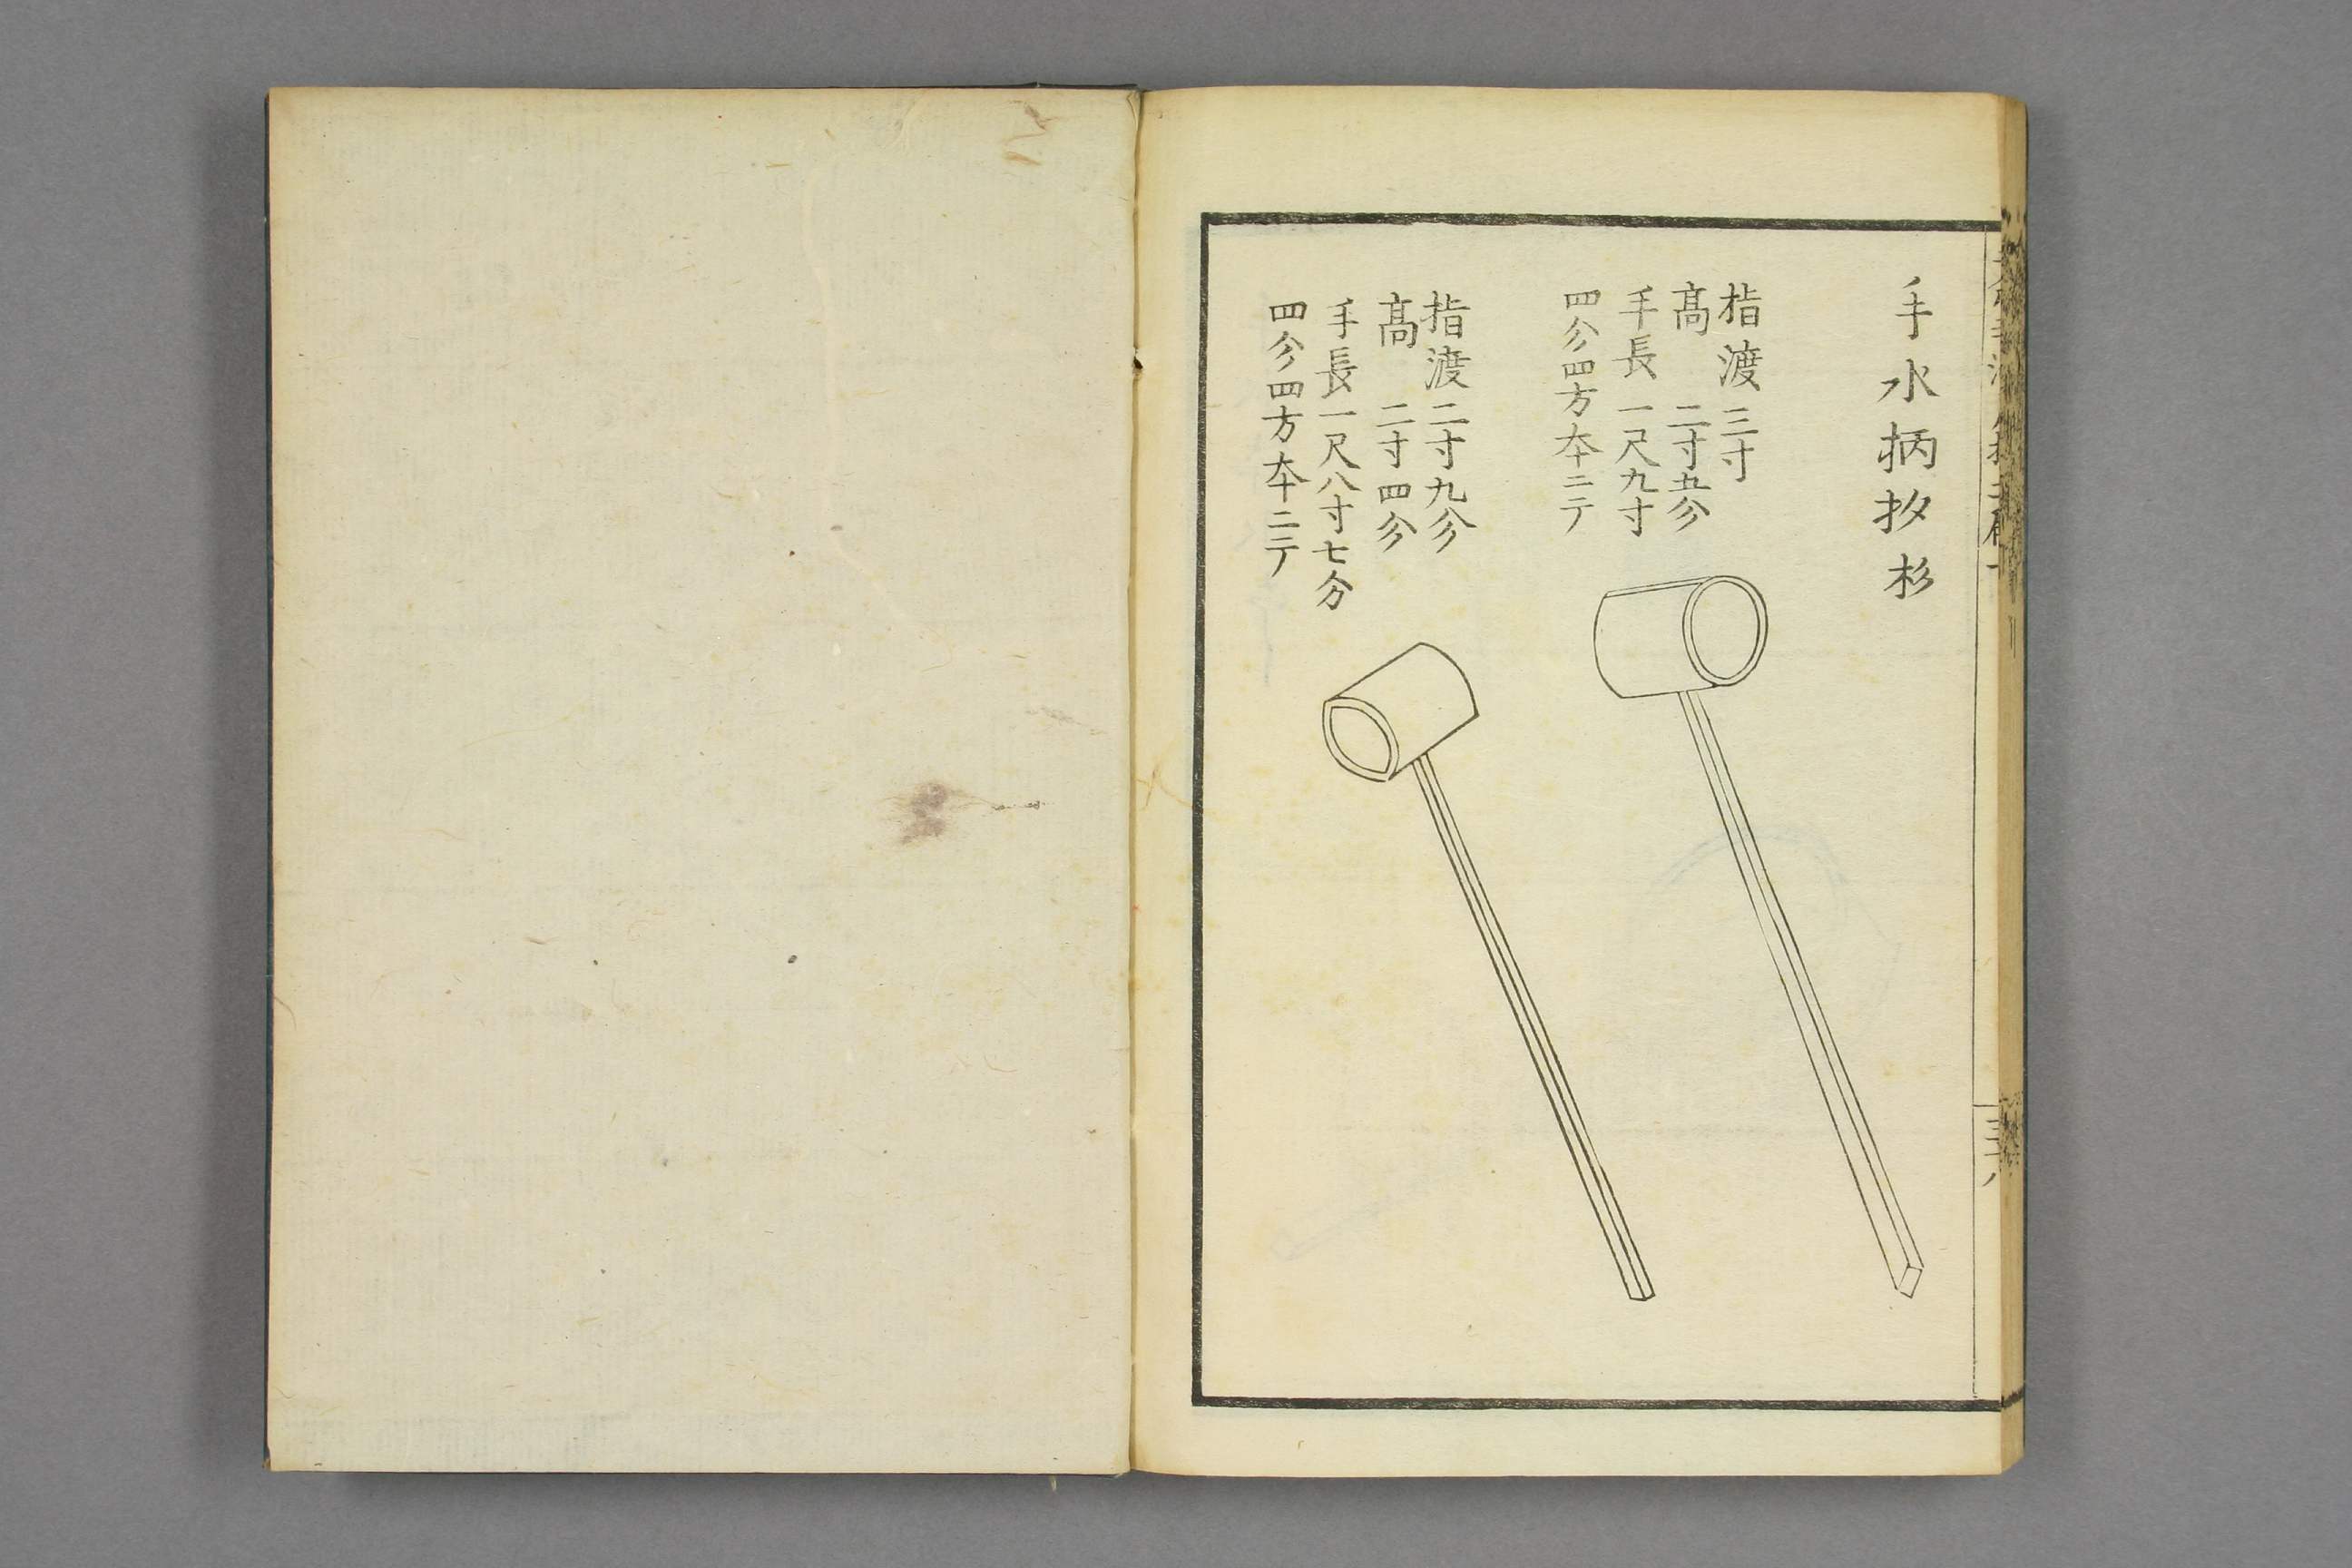 手水柄杓 杉
指渡 三寸
高 二寸五分
手長 一尺九寸
四分四方 本ニテ
指渡 二寸九分
高 二寸四分
手長 一尺八寸七分
四分四方 本ニテ